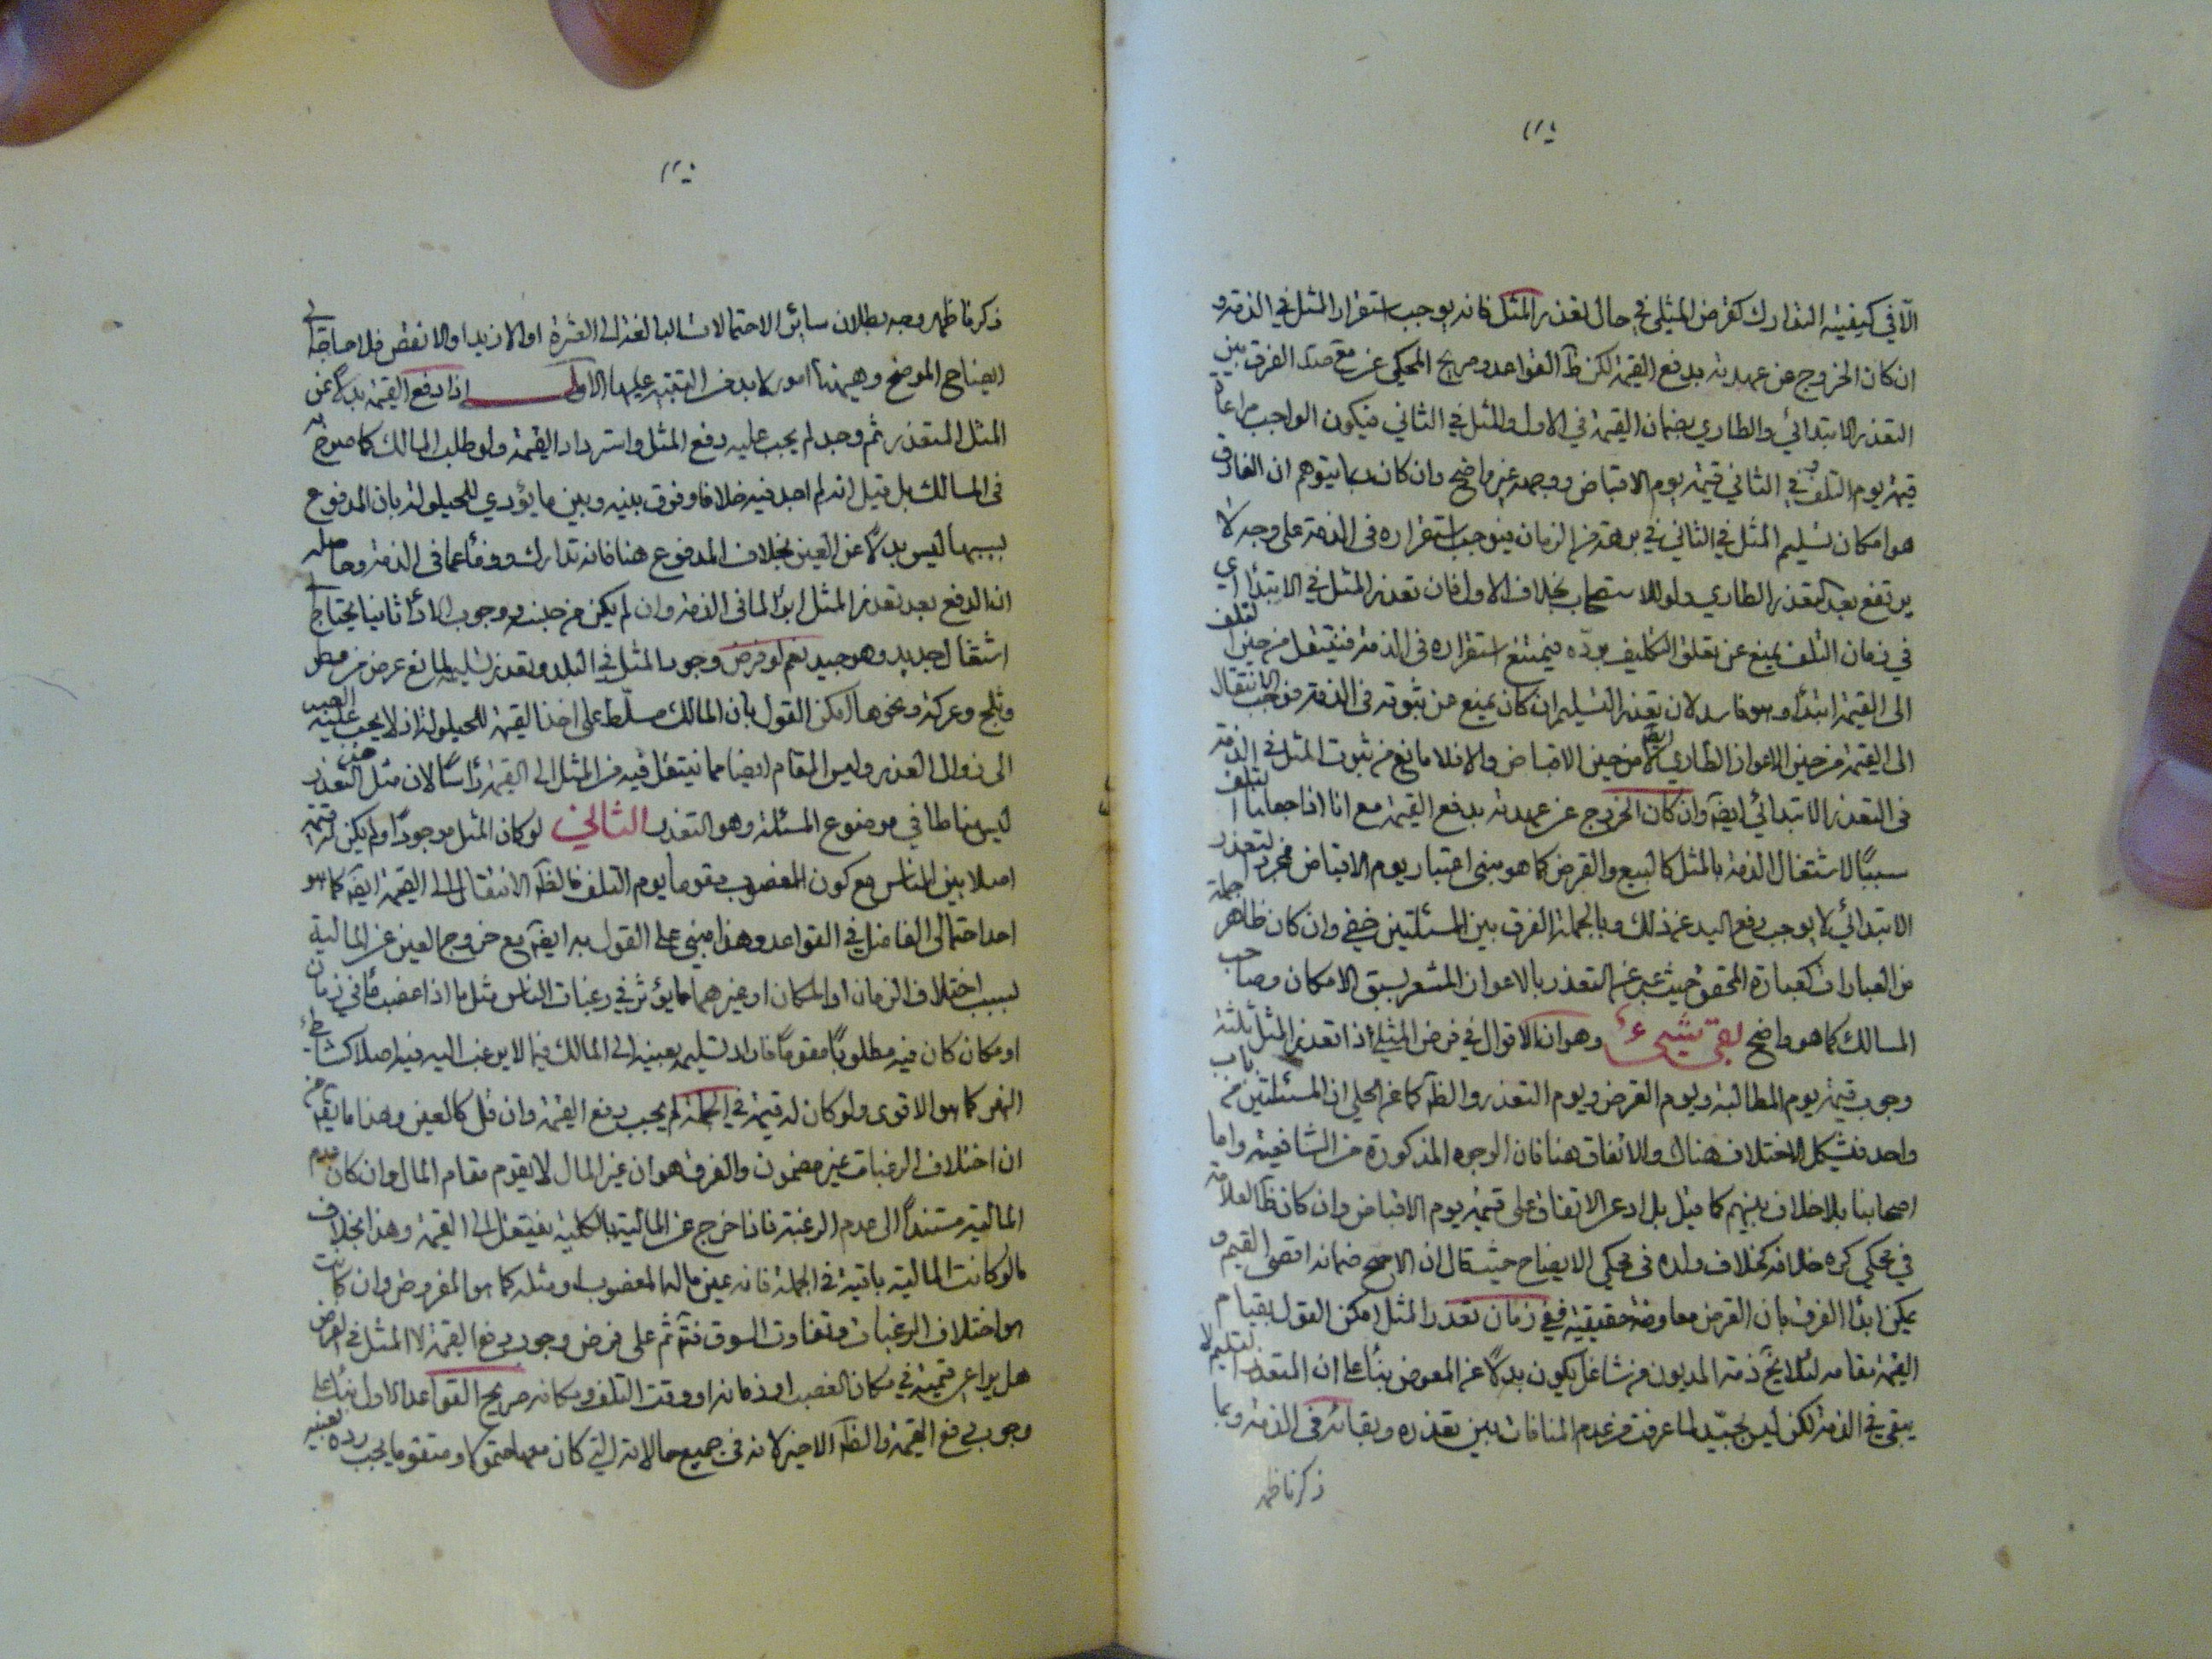 الا في كيفيته التدارك كقرض المثلي في حال تعذر المثل فانه يوجب استقرار المثل في الذمة و
ان كان الخروج عن عهدته بدفع القيمة لكن ظ القواعد وصريح المحكي عن مع صد الفرق بين
التعذر الابتدائي والطاري بضمان القيمة في الاول والمثل في الثاني فيكون الواجب مراعاة
قيمة يوم التلف وفي الثاني قيمة يوم الاقباض ووجهه غير واضح وان كان ربما يتوهم ان الفارق
هو امكان تسليم المثل في الثاني في برهة من الزمان فيوجب استقراره في الذمة على وجه لا
يرتفع بعد التعذر الطاري ولو للاستصحاب بخلاف الاول فان تعذر المثل في الابتداء اي
في زمان التلف يمنع عن تعلق التكليف بردّه فيمتنع استقراره في الذمة فينتقل من حين التلف
الى القيمة ابتداء وهو فاسد لان تعذر التسليم ان كان يمنع من ثبوته في الذمة فوجب الانتقال
الى القيمة من حين الاعواز الطاري ايض لا من حين الاقباض والا فلا مانع من ثبوت المثل في الذمة
في التعذر الابتدائي ايض وان كان الخروج عن عهدته بدفع القيمة مع انا اذا جعلنا التلف
سببًا لاشتغال الذمة بالمثل كالبيع والقرض كما هو مبنى اعتبار يوم الاقباض فمجرد التعذر
الابتدائي لا يوجب رفع اليد عن ذلك وبالجملة الفرق بين المسئلتين خفي وان كان ظاهر جملة
من العبارات كعبارة المحقق حيث عبر عن التعذر بالاعواز المشعر بسبق الامكان وصاحب
المسالك كما هو واضح بقي شيء وهو ان الاقوال في قرض المثلي اذا تعذر المثل ثلثة
وجوب قيمة يوم المطالبة ويوم القرض ويوم التعذر والظ كما عن الحلي ان المسئلتين من باب
واحد فيشكل الاختلاف هناك والاتفاق هنا فان الوجوه المذكورة من الشافعية واما
اصحابنا بلا خلاف بينهم كما قيل بل ادعي الاتفاق على قيمة يوم الاقباض وان كان ظ العلامة
في محكي كره خلافه كخلاف ولده في محكي الايضاح حيث قال ان الاصح ضمانه اقصى القيم و
يمكن ابداء الفرق بان القرض معاوضة حقيقية ففي زمان تعذر المثل امكن القول بقيام
القيمة مقامه لئلا يخ ذمة المديون من شاغل يكون بدلًا عن المعوض بناء على ان المتعذر التسليم لا
يبقى في الذمة لكن ليس بجيّد لما عرفت من عدم المنافات بين تعذره وبقائه في الذمة وبما
ذكرنا ظهر
ذكرنا ظهر وجه بطلان سائر الاحتمالات البالغة الى العشرة او الازيد او الانقص فلا حاجة الى
ايضاح الموضح وهيهنا امور لا بد من التنبيه عليها الاول اذا دفع القيمة بدلًا عن
المثل المتعذر ثم وجد لم يجب عليه دفع المثل واسترداد القيمة ولو طلب المالك كما صرح به
في المسالك بل قيل انه لم اجد فيه خلافا وفرق بينه وبين ما يؤدي للحيلولة بان المدفوع
بسببها ليس بدلًا عن العين بخلاف المدفوع هنا فانه تدارك ووفاء عما في الذمة وحاصله
ان الدفع بعد تعذر المثل ابراء لما في الذمة وان لم يكن من جنسه ووجوب الاداء ثانيا يحتاج الى
اشتغال جديد وهو جيد نعم لو فرض وجود المثل في البلد وتعذر تسليمه لمانع عرض من مطر
وثلج ومعركة ونحوها امكن القول بان المالك مسلّط على اخذ القيمة للحيلولة اذ لا يجب عليه الصبر
الى زوال العذر وليس المقام ايضا مما ينتقل فيه من المثل الى القيمة راسًا لان مثل هذا التعذر
ليس مناطا في موضوع المسئلة وهو التعذر الثاني لو كان المثل موجودًا ولم يكن له قيمة
اصلا بين الناس مع كون المغصوب متقوما يوم التلف فالظ الانتقال الى القيمة ايض كما هو
احد احتمالي الفاضل في القواعد وهذا مبني على القول به ايض مع خروج العين عن المالية
لسبب اختلاف الزمان او المكان او غيرهما مما يؤثر في رغبات الناس مثل ما اذا غصب ماء في زمان
او مكان كان فيه مطلوبًا متقومًا فاراد تسليمه بعينه الى المالك فيما لا يرغب اليه فيه اصلا كشاطئ
النهر كما هو الاقوى ولو كان له قيمة في الجملة لم يجب دفع القيمة وان قل كالعين وهذا ما يق من
ان اختلاف الرغبات غير مضمون والفرق هو ان غير المال لا يقوم مقام المال وان كان عدم
المالية مستندًا الى عدم الرغبة فاذا خرج عن المالية بالكلية ينتقل الى القيمة وهذا بخلاف
ما لو كانت المالية باقية في الجملة فانه عين ماله المغصوب او مثله كما هو المفروض وان كانت
هو اختلاف الرغبات وتفاوت السوق فتم ثم على فرض وجوب دفع القيمة لا المثل في الفرض
هل يراعي قيمته في مكان الغصب او زمانه او وقت التلف ومكانه صريح القواعد الاول بناء على
وجوب دفع القيمة والظ الاخير لانه في جميع حالاته التي كان معها متمولا ومتقوما يجب رده بعينه